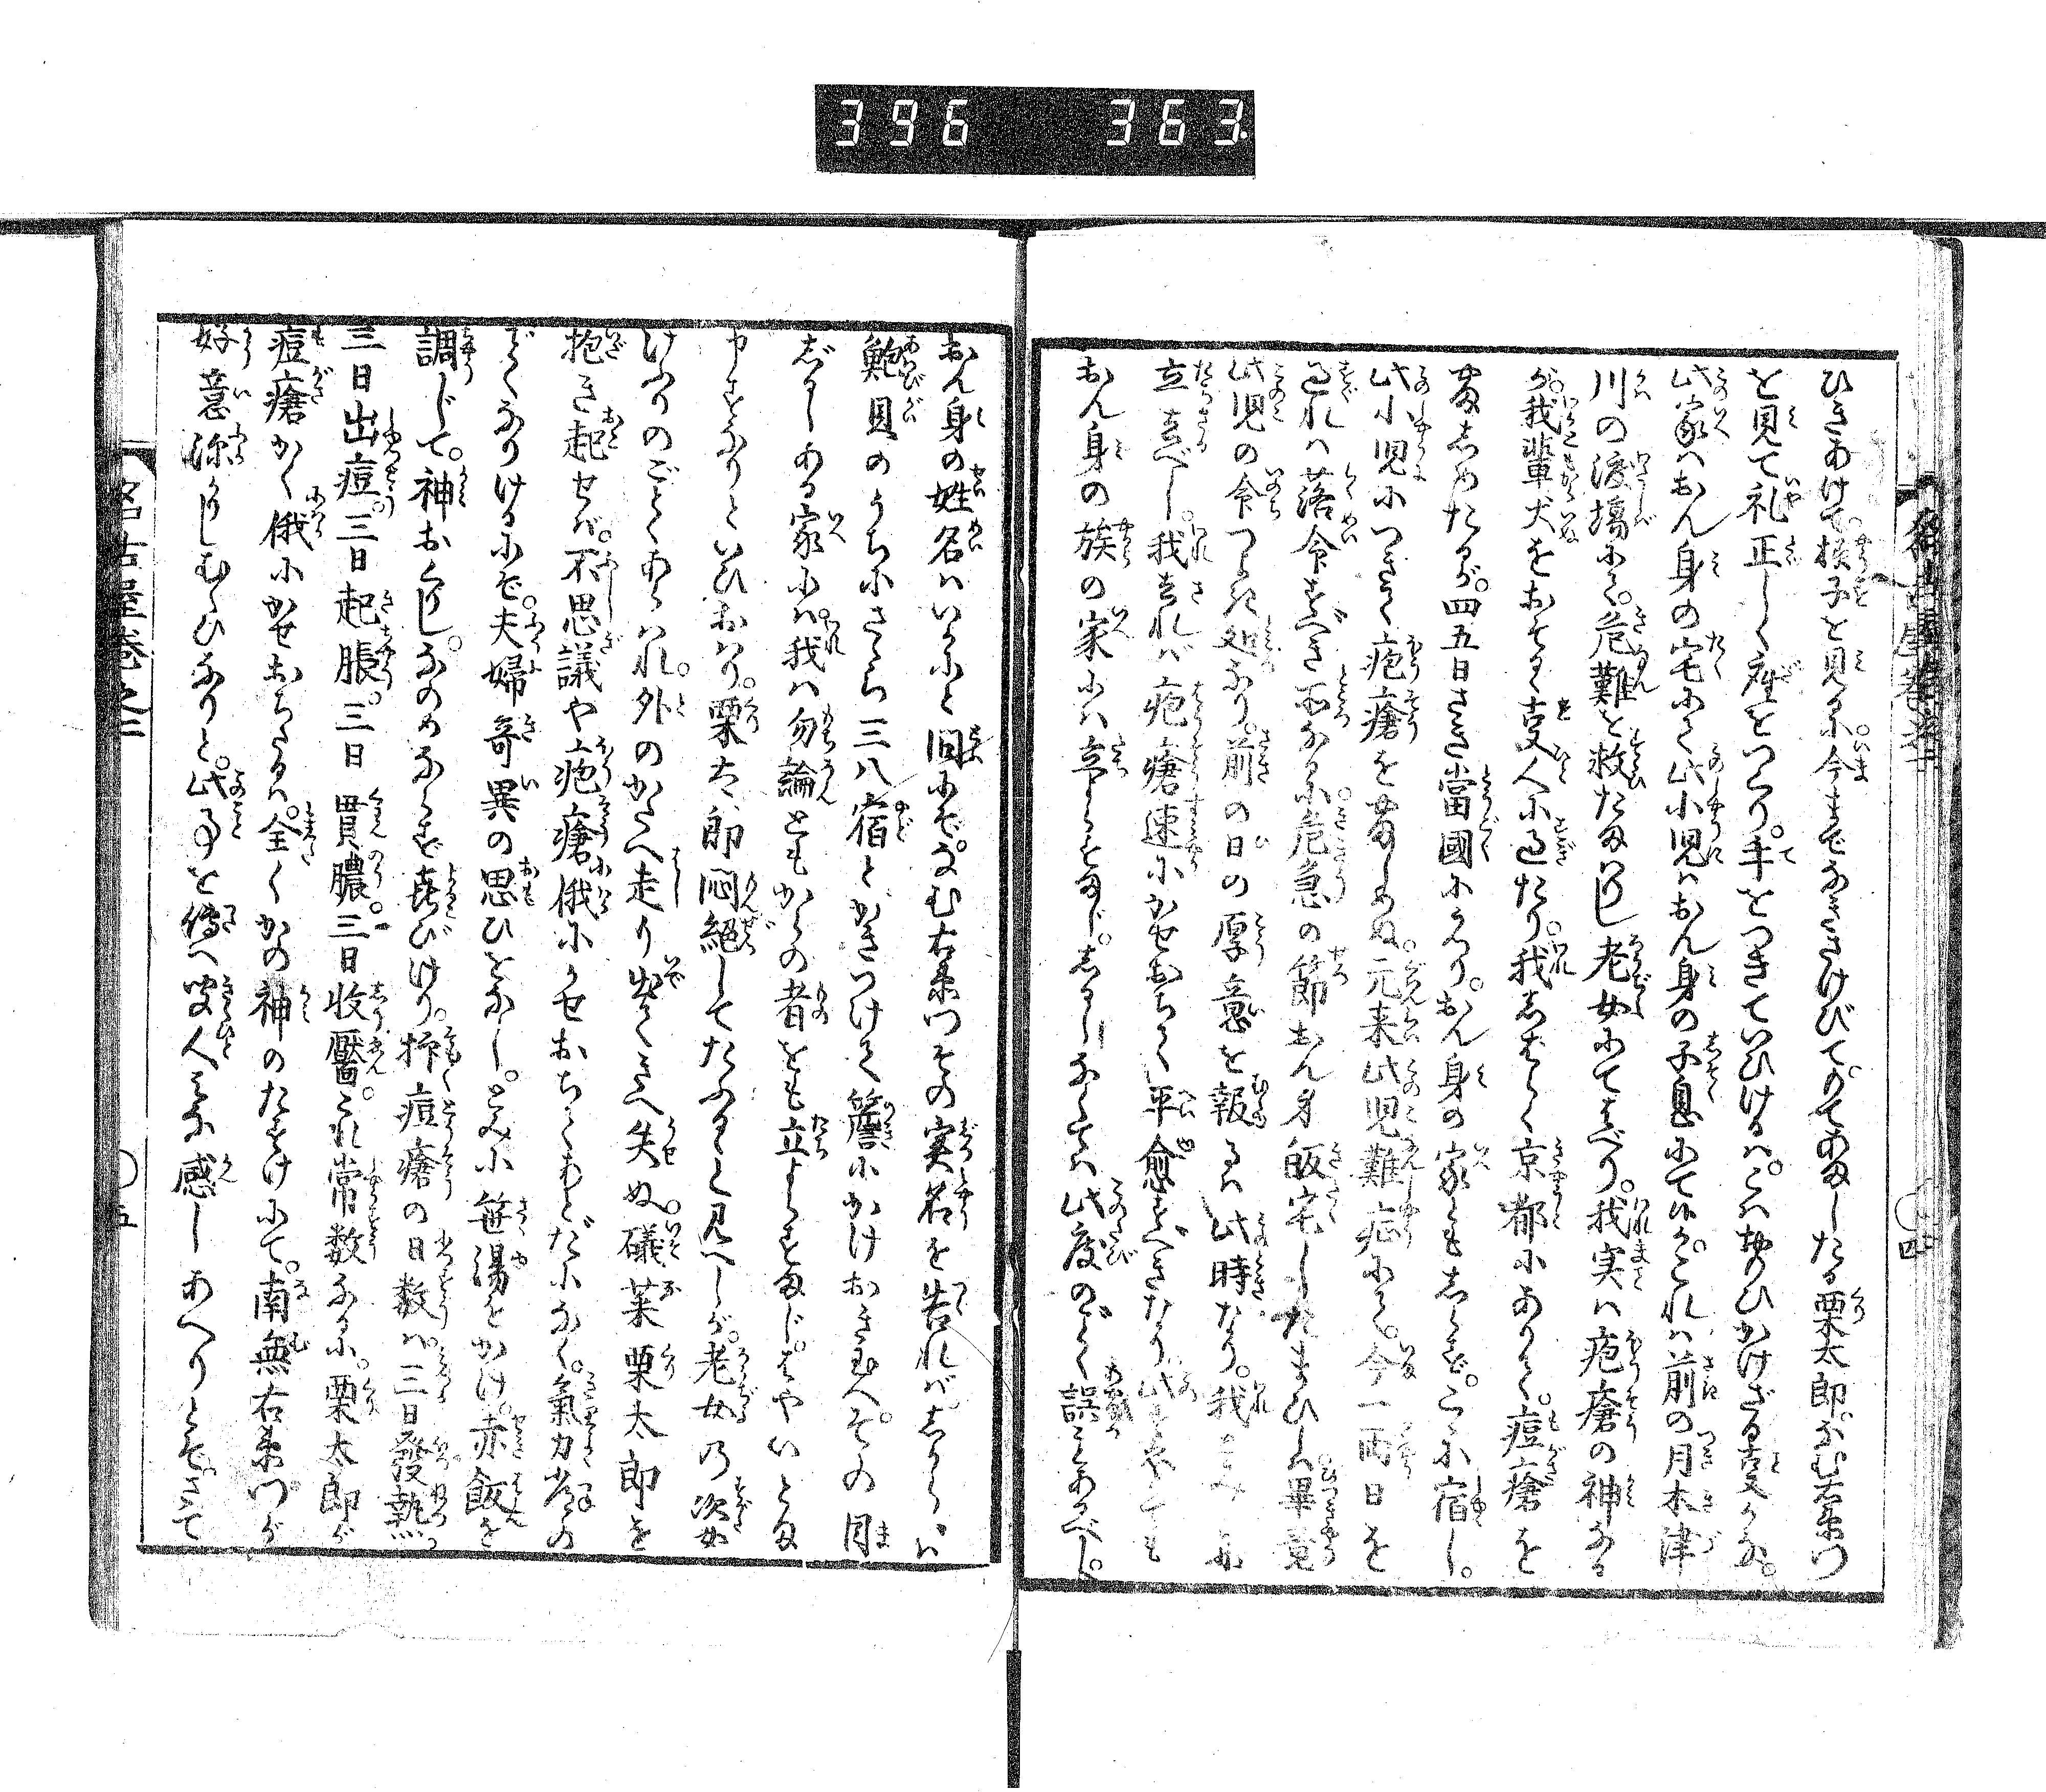 396 363
ひきあけて。様子を見るに。今までなきさけびて。のてあましたる栗太郎。なむ右衛門
を見て礼正しく座をつくり。手をつきていひけるは。こは思ひかけざる事かな。
此家はおん身の宅にて此小児はおん身の子息にて候か。これは前の月木津
川の渡場にて。危難を救たまはりし老女にてはべり。我実は疱瘡の神なる
が。我輩犬をおそるゝ事人に過たり。我しばらく京都にありて。痘瘡を
煩しめたるが。四五日さき當國にうつり。おん身の家ともしらず。こゝに宿し。
此小児につきて疱瘡を煩しめぬ。元来此児難症にて。今一両日を
過れは落命すべき所なるに危急の節おん身皈宅したまひしは畢竟
此児の命つよき処なり。前の日の厚意を報るは此時なり。我すみやかに
立去べし。我去れば疱瘡速にかせおちて平愈すべきなり
おん身の族の家には立よるまじ。しるしなくては此度のごとく誤ことあるべし。
おん身の姓名はいかにと問にぞ。なむ右衛門その実名を告れば。しからば
鮑貝のうちにさゝら三八宿とかきつけて簷にかけおき玉へ。その目
じるしある家には。我は勿論ともがらの者をも立よらすまじ。はやいとま
申すなりといひおはり。栗太郎悶絶してたふると見へしが。老女の姿
けふりのごとくあらはれ。外のかたへ走り出てきへ失ぬ。礒菜栗太郎を
抱き起せば。不思議や疱瘡俄にかせおちてあとだになく。氣力常の
ごとくなりけるにぞ。夫婦奇異の思ひをなし。とみに笹湯をかけ。赤飯を
調じて。神おくりし。なのめならず㐂びけり。抑痘瘡の日数は。三日發熱
三日出痘。三日起脹。三日貫膿。三日收靨。これ常数なるに。栗太郎が
痘瘡かく俄にかせおちたるは。全くかの神のたすけにて。南無右衛門が
好意深かりしむくひなりと。此事を傳へ聞人みな感じあへりとぞ。さて
名古屋巻之二
五
四